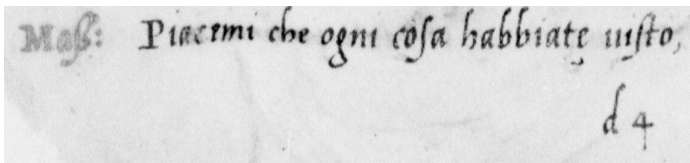 Maß: Piacemi che ogni coſa habbiate uiſto,
d 4